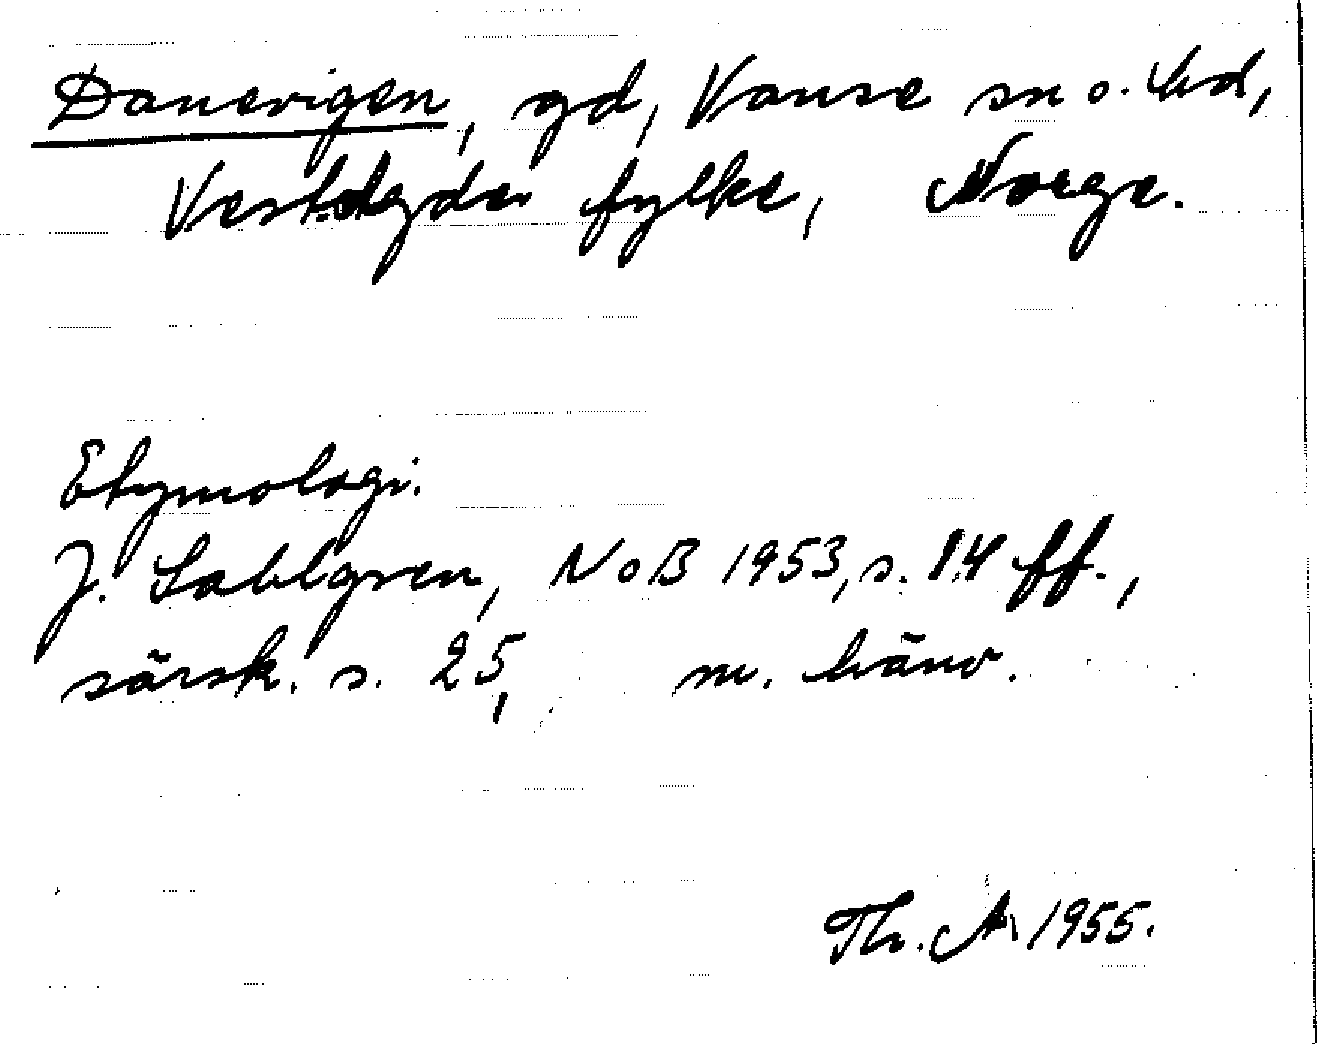 Danevigen, gd, Vanse sn o. hd,
Vestagder fylke, Norge.
Etymologi.
J. Sahlgren, NoB 1953, s. 14 ff.,
särsk. s. 25, m. hänv.
Th. A. 1955.